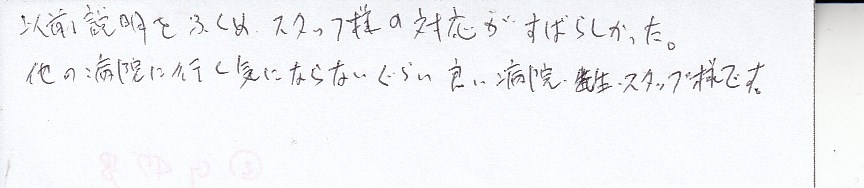 以前、説明をふくめ、スタッフ様の対応がすばらしかった。
他の病院に行く気にならないぐらい良い病院・先生・スタッフ様です。